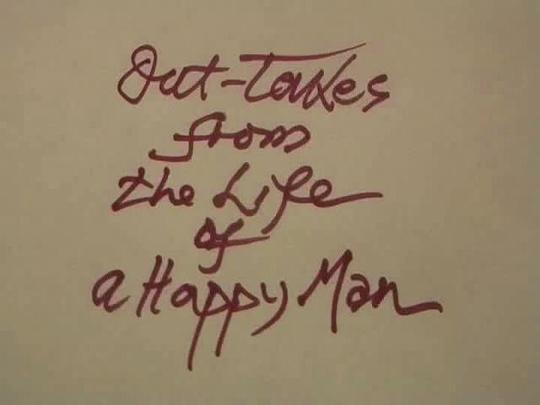 Out-Takes
from
the Life
of
a Happy Man